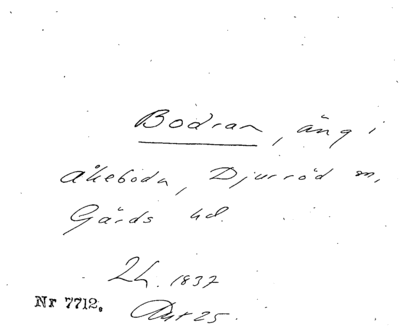 Bodran, äng i
Åkeboda, Djurröd sn,
Gärds hd.
Lh. 1837
Nr 7712. Akt 25.